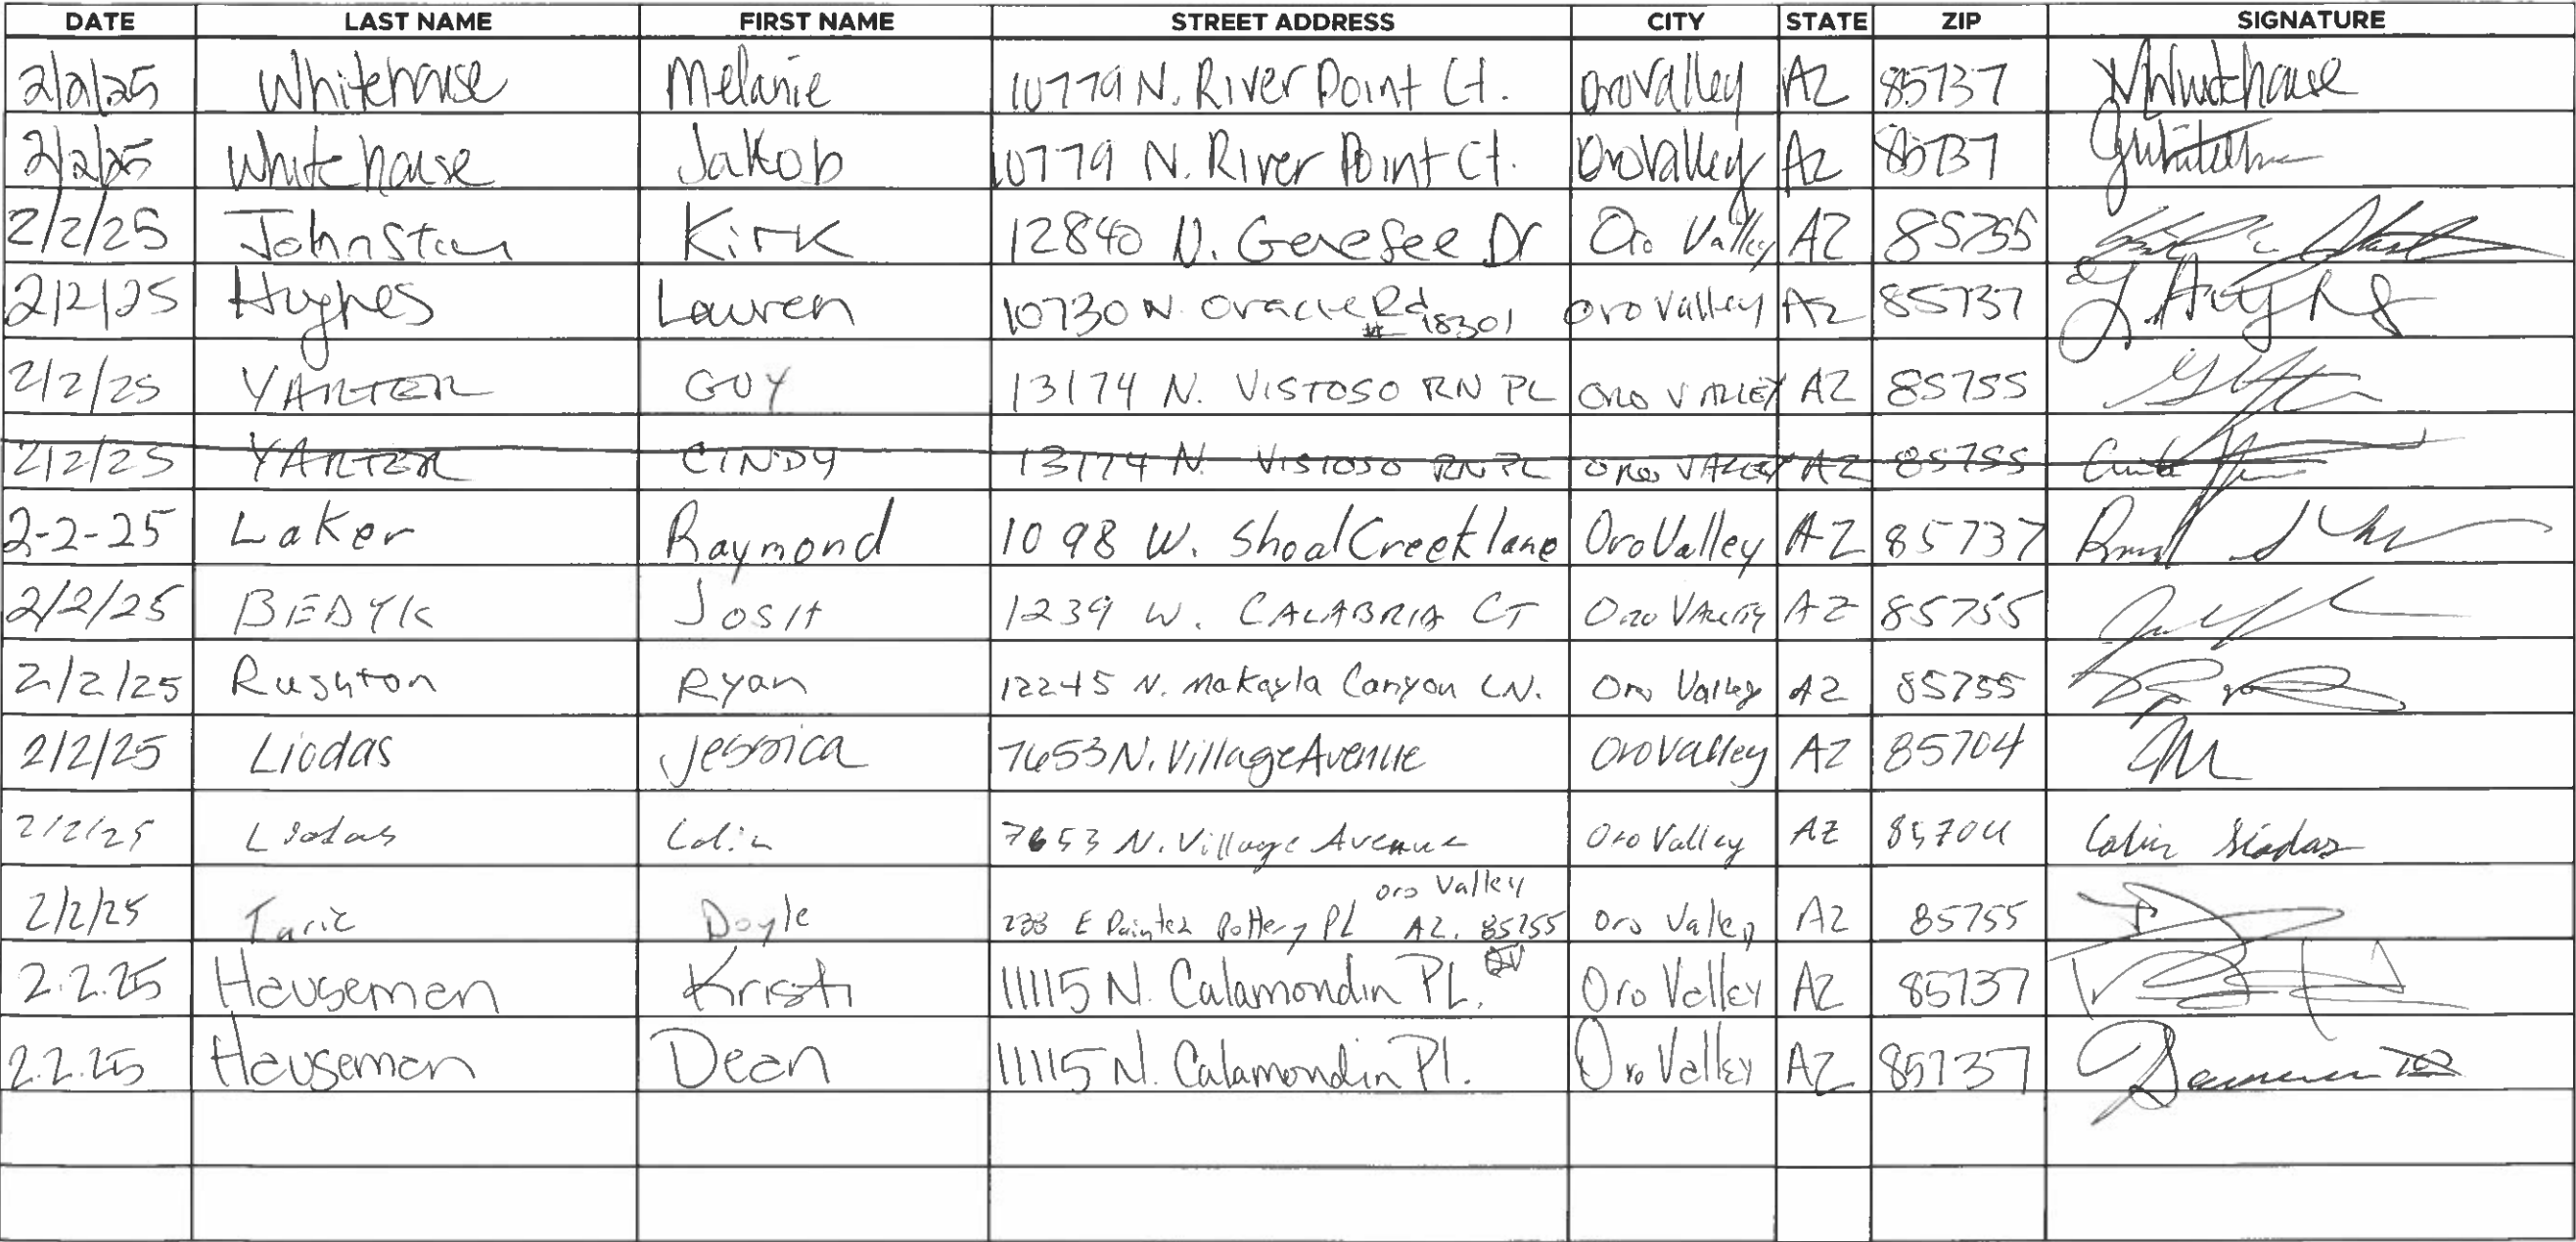 DATE LAST NAME FIRST NAME STREET ADDRESS CITY STATE ZIP SIGNATURE
2/2/25 Whitehouse Melanie 10779 N. River Point Ct. Oro Valley AZ 85737 MWhitehouse
2/2/25 Whitehouse Jakob 10779 N. River Point Ct. Oro Valley AZ 85737
2/2/25 Johnston Kirk 12840 N. Genesee Dr Oro Valley AZ 85755
2/2/25 Hughes Lauren 10730 N. Oracle Rd # 18301 Oro Valley AZ 85737 L Hughes
2/2/25 YARTER GUY 13174 N. VISTOSO RN PL ORO VALLEY AZ 85755
2/2/25 YARTER CINDY 13174 N. VISTOSO RN PL ORO VALLEY AZ 85755
2-2-25 Laker Raymond 1098 W. Shoal Creek lane Oro Valley AZ 85737
2/2/25 BEDYK JOSH 1239 W. CALABRIA CT ORO VALLEY AZ 85755
2/2/25 Rushton Ryan 12245 N. Makayla Canyon LN. Oro Valley AZ 85755
2/2/25 Liodas Jessica 7653 N. Village Avenue Oro Valley AZ 85704
2/2/25 Liodas Colin 7653 N. Village Avenue Oro Valley AZ 85704 Colin Liodas
Oro Valley
2/2/25 Taric Doyle 233 E Painted Pottery PL AZ. 85755 Oro Valley AZ 85755
2.2.25 Hauseman Kristi 11115 N. Calamondin PL. Oro Valley AZ 85737
2.2.25 Hauseman Dean 11115 N. Calamondin Pl. Oro Valley AZ 85737